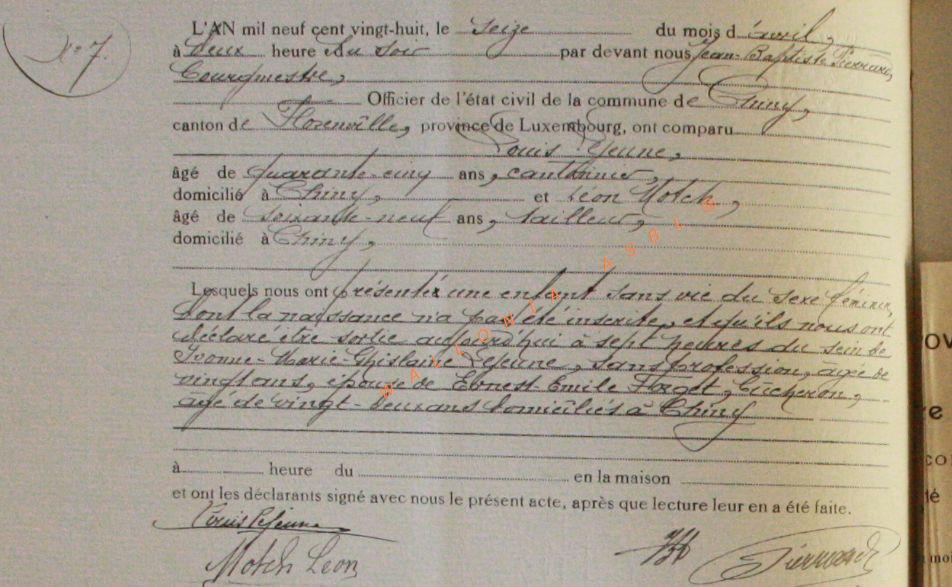 N° 7.
L'AN mil neuf cent vingt-huit, le seize du mois d'avril,
à deux heure du soir par devant nous Jean-Baptiste Pierrard,
Bourgmestre,
Officier de l'état civil de la commune de Chiny,
canton de Florenville, province de Luxembourg, ont comparu
Louis Lejeune,
âgé de quarante-cinq ans, cantonnier,
domicilié à Chiny, et Léon Motch,
âgé de soixante-neuf ans, tailleur,
domicilié à Chiny,
Lesquels nous ont présenté une enfant sans vie du sexe féminin,
dont la naissance n'a pas été inscrite, et qu'ils nous ont
déclaré être sortie aujourd'hui à sept heures du sein de
Yvonne-Marie-Ghislaine Lejeune, sans profession, âgée de
vingt ans, épouse de Ernest-Emile Forget, bûcheron,
âgé de vingt-deux ans domiciliés à Chiny
à heure du en la maison
et ont les déclarants signé avec nous le présent acte, après que lecture leur en a été faite.
Louis Lejeune
Motch Leon
Pierrard